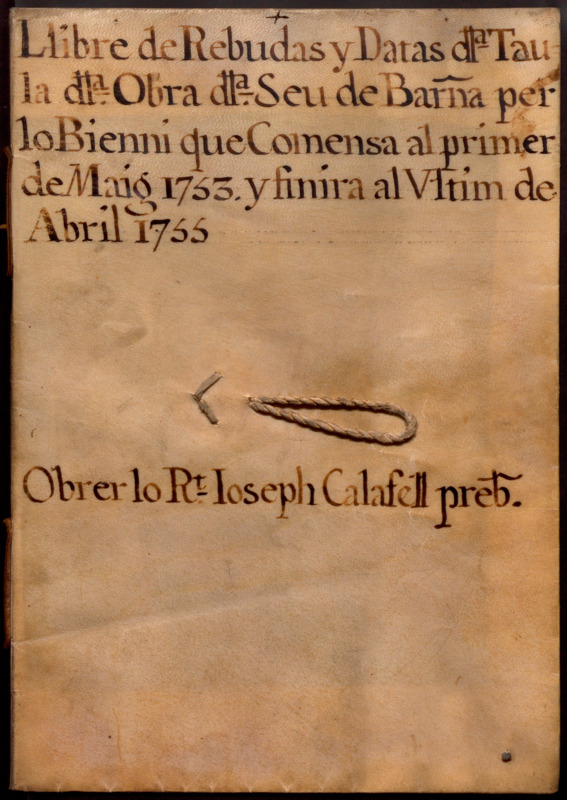 +
Llibre de Rebudas y Datas dła. Tau-
la dła. Obra dła. Seu de Barña per
lo Bienni que Comensa al primer
de Maig 1753. y finira al Vltim de
Abril 1755
Obrer lo Rt. Ioseph Calafell preb̄.